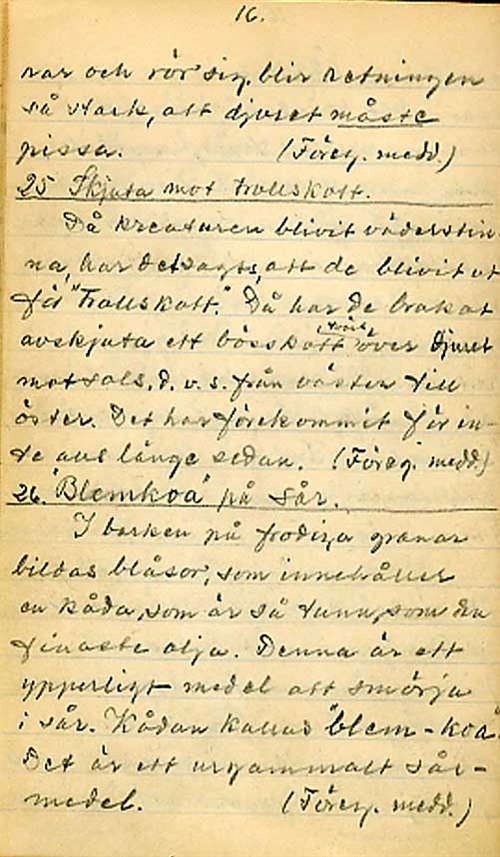 16.
nar och rör sig, blir retningen
så stark, att djuret måste
pissa. (Föreg. medd.)
25 Skjuta mot trollskott.
Då kreaturen blivit väderstin-
na, har det sagts, att de blivit ut
för "Trollskott." Då har de brukat
avskjuta ett bösskott tvärs över djuret
motsols, d. v. s. från väster till
öster. Det har förekommit för in-
te allt länge sedan. (Föreg. medd.)
26. "Blemkoa" på sår.
I barken på frodiga granar
bildas blåsor, som innehåller
en kåda, som är så tunn, som den
finaste olja. Denna är ett
ypperligt medel att smörja
i sår. Kådan kallas "blem-koa".
Det är ett urgammalt sår-
medel. (Föreg. medd.)